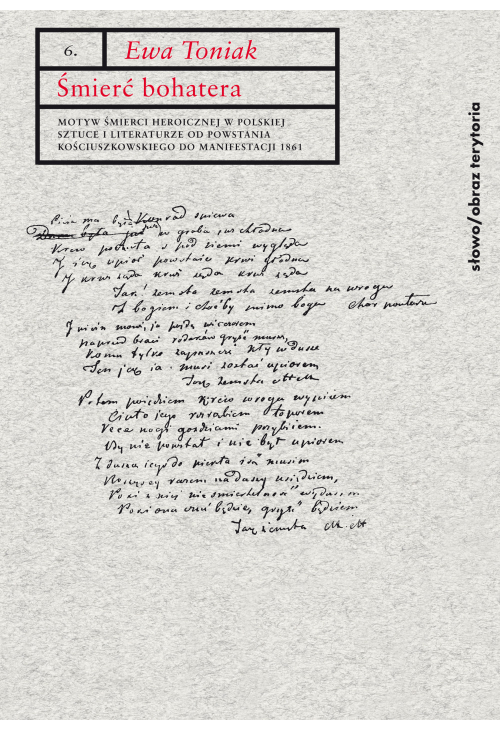 6.
Ewa Toniak
Śmierć bohatera
MOTYW ŚMIERCI HEROICZNEJ W POLSKIEJ
SZTUCE I LITERATURZE OD POWSTANIA
KOŚCIUSZKOWSKIEGO DO MANIFESTACJI 1861
słowo/obraz terytoria
Pieśń ma Konrad śpiewa
była już w grobie już chłodna
Krew poczuła z pod ziemi wygląda
I jak upiór powstaje krwi głodna
I krwi żąda krwi żąda krwi żąda
Tak! zemsta zemsta zemsta na wroga
Z bogiem i choćby mimo boga Chór powtarza
I pieśń mówi, ja pójdę wieczorem
naprzód braci rodaków gryść muszę,
Komu tylko zapuszczę kły w duszę
Ten jak ja musi zostać upiorem
Tak zemsta
Potem pójdziem krew wroga wypijem
Ciało jego rozrąbiem toporem
Ręce nogi goździami przybijem.
By nie powstał i nie był upiorem
Z duszą jego do piekła iść musim
Wszyscy razem na duszy usiędziem,
Póki z niej nieśmiertelność wydusim
Póki ona czuć będzie, gryść będziem.
Tak zemsta